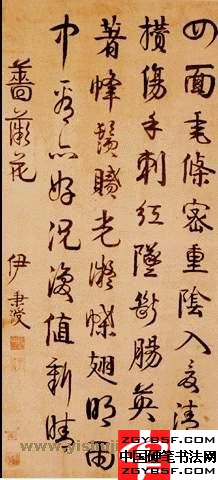 四面垂條密重陰入夏清
攢傷手刺紅墜斷腸英
著蜂鬚膩光凝蝶翅明雨
中看亦好況復值新晴
薔薇花
伊秉綬
ZGYBSF.COM
中国硬笔书法网
ZGYBSF.COM